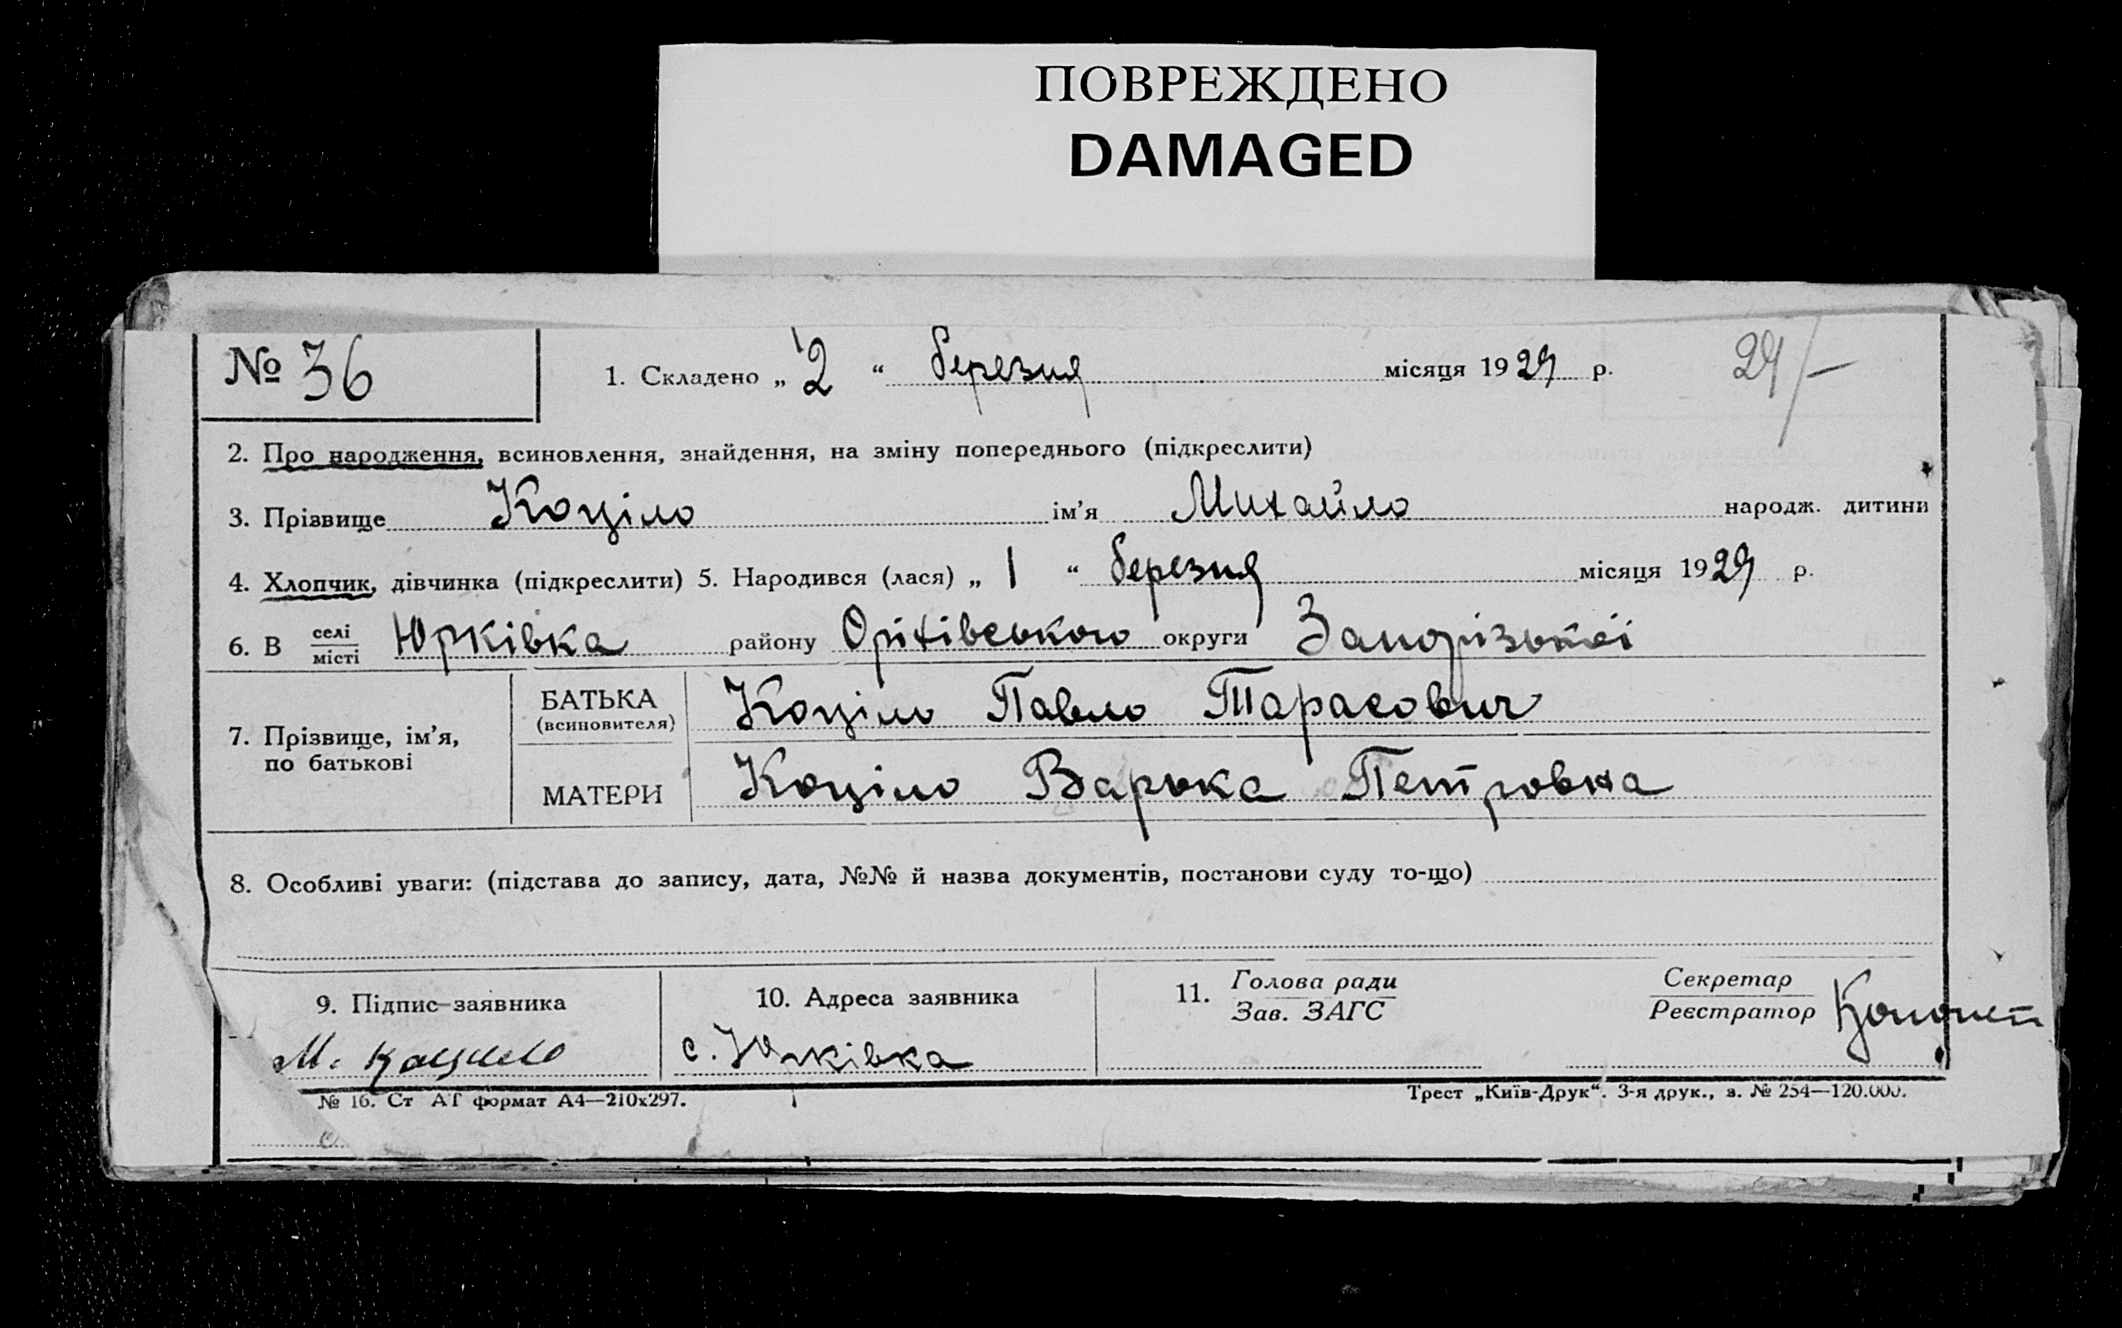 ПОВРЕЖДЕНО
DAMAGED
№ 36
1. Складено „ 2 “ березня місяця 1929 р. 29/-
2. Про народження, всиновлення, знайдення, на зміну попереднього (підкреслити)
3. Прізвище Коціло ім’я Михайло народж. дитини
4. Хлопчик, дівчинка (підкреслити) 5. Народився (лася) „ 1 “ березня місяця 1929 р.
6. В селі місті Юрківка району Оріхівського округи Запорізької
7. Прізвище, ім’я, по батькові
БАТЬКА (всиновителя) Коціло Павло Тарасович
МАТЕРИ Коціло Варька Петровна
8. Особливі уваги: (підстава до запису, дата, №№ й назва документів, постанови суду то-що)
9. Підпис заявника
М. Коцило
10. Адреса заявника
с. Юрківка
11. Голова ради
Зав. ЗАГС
Секретар
Реєстратор
№ 16. Ст АТ формат А4—210х297.
Трест „Київ-Друк“. 3-я друк., з. № 254—120.000.